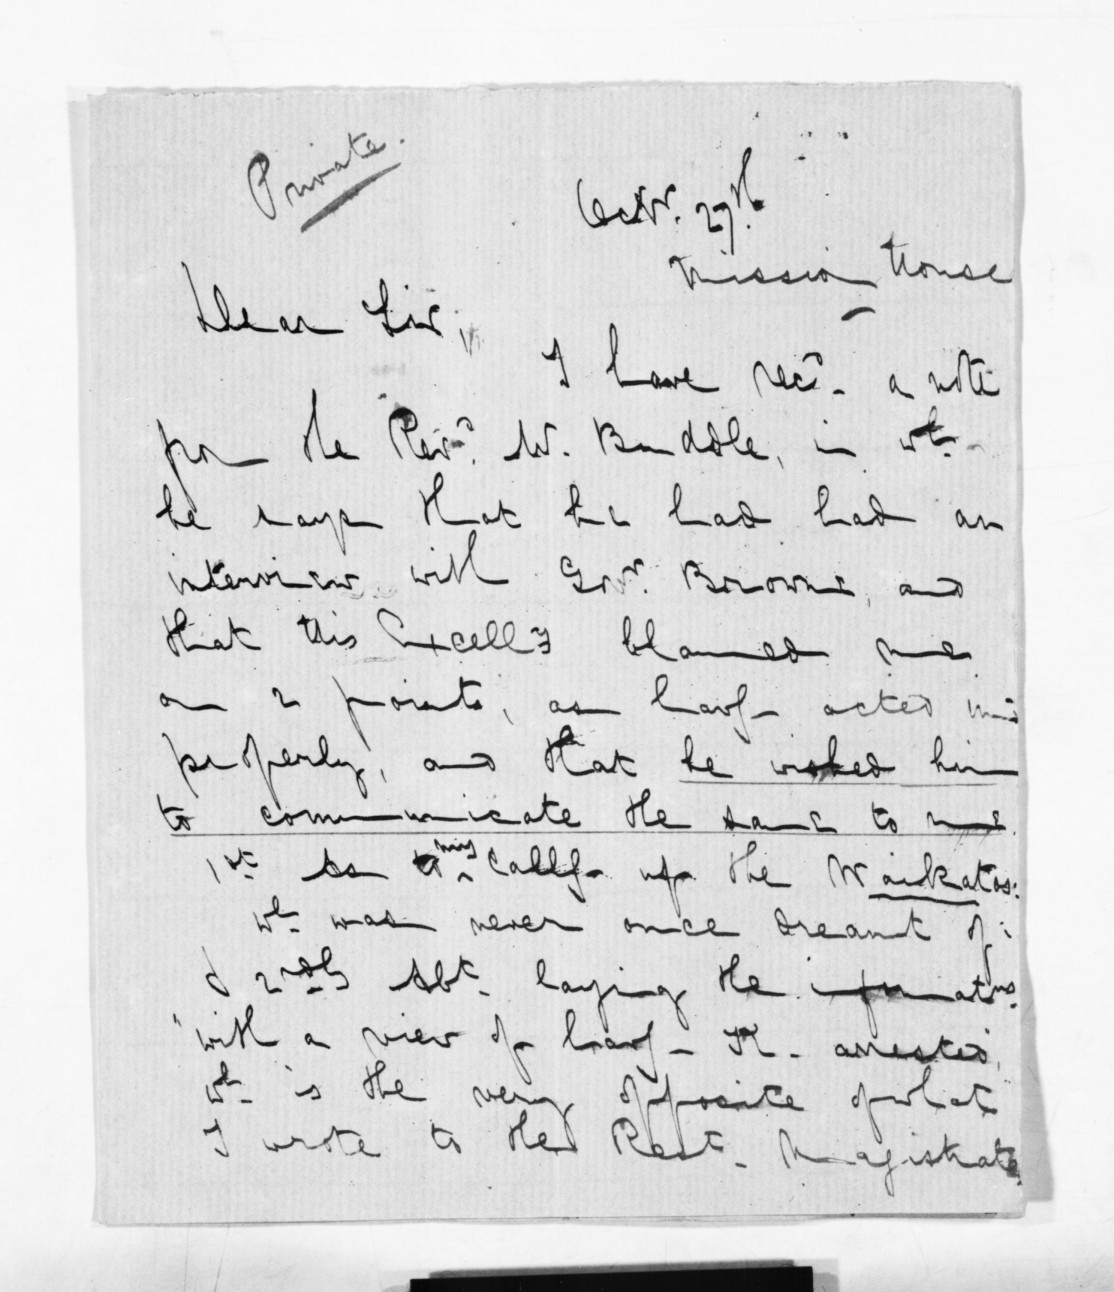 Private.
Octbr. 27th.
Mission House
Dear Sir,
I have recd. a note
from the Revd. W. Buddle, in wh.
he says that he had had an
interview with Govr. Browne, and
that this Excelly blamed me
on 2 points, as havg. acted im
properly, and that he wished him
to communicate the same to me.
1st. As my Callg. up the Waikatos:
wh. was never once dreamt of:
& 2ndly Abt. laying the informatns.
with a view of havg. K. arrested,
wh. is the very opposite of what
I wrote to the Rest. Magistrate